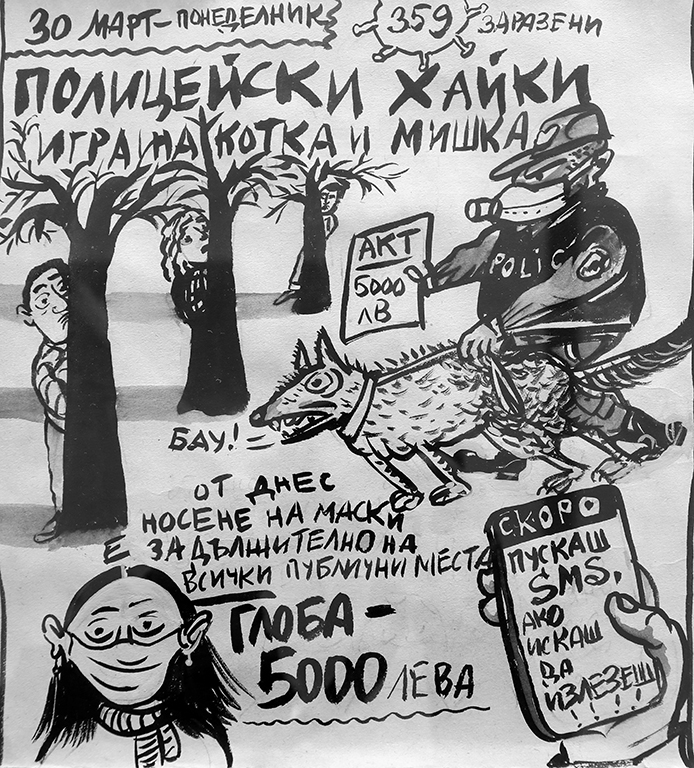 30 МАРТ-ПОНЕДЕЛНИК
359 ЗАРАЗЕНИ
ПОЛИЦЕЙСКИ ХАЙКИ
ИГРА НА КОТКА И МИШКА
АКТ
5000
ЛВ
POLIC
БАУ!
ОТ ДНЕС
НОСЕНЕ НА МАСКИ
Е ЗАДЪЛЖИТЕЛНО НА
ВСИЧКИ ПУБЛИЧНИ МЕСТА
ГЛОБА-
5000 ЛЕВА
СКОРО
ПУСКАШ
SMS,
АКО
ИСКАШ
ДА
ИЗЛЕЗЕШ
!!!!